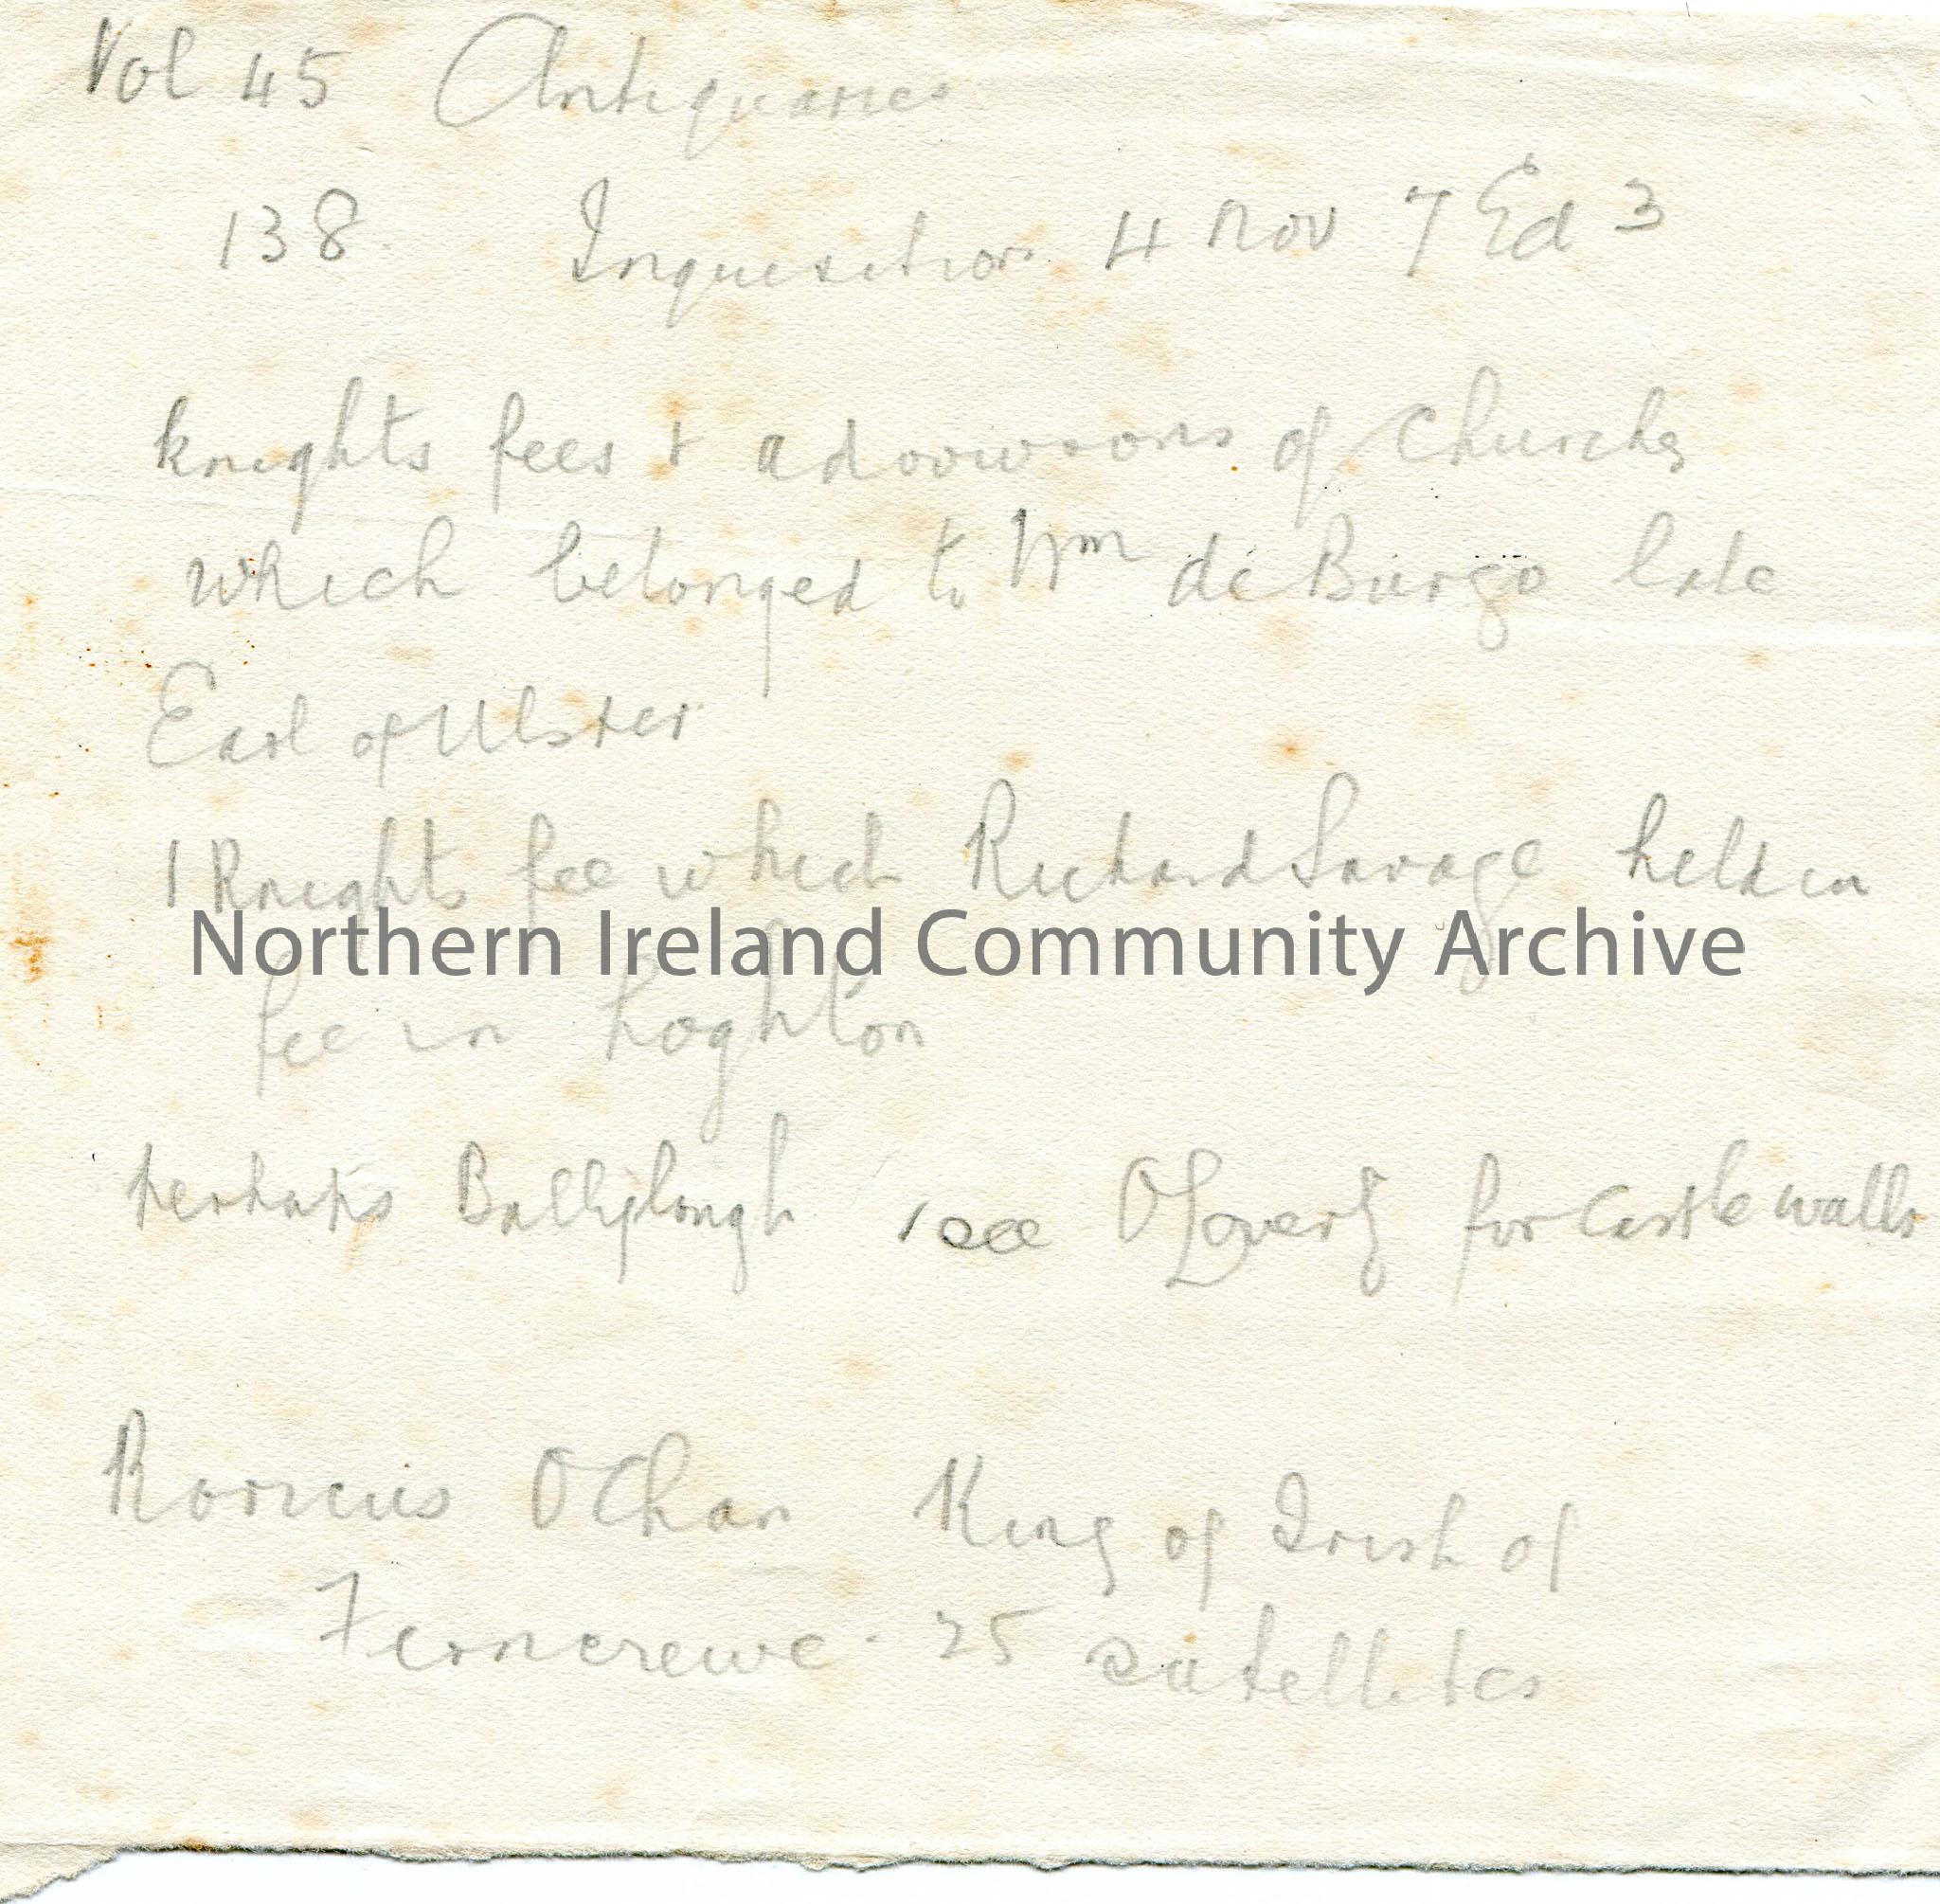 Vol 45 Antiquaries
138 Inquisition 4 Nov 7 Ed 3
knights fees & advowsons of Churches
which belonged to Wm de Burgo late
Earl of Ulster
1 Knights fee which Richard Savage held in
Northern Ireland Community Archive
fee in Loghton
perhaps Ballylough see O Laverty for Castle walls
Roricus O Chan King of Irish of
Ferncrewe. 25 satellites